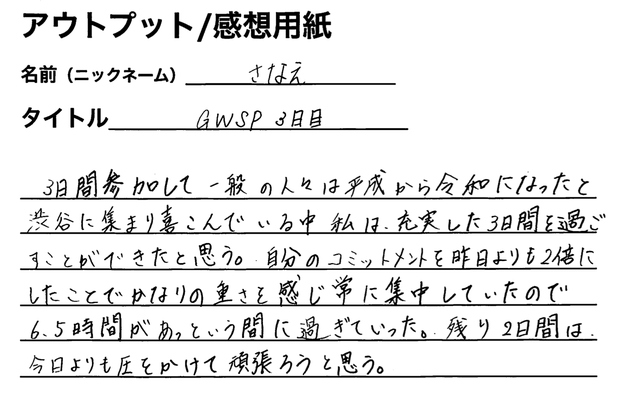 アウトプット/感想用紙
名前（ニックネーム） さなえ
タイトル GWSP 3日目
3日間参加して 一般の人々は平成から令和になったと
渋谷に集まり喜こんでいる中 私は、充実した3日間を過ご
すことができたと思う。自分のコミットメントを昨日よりも2倍に
したことでかなりの重さを感じ常に集中していたので
6.5時間があっという間に過ぎていった。残り2日間は、
今日よりも圧をかけて頑張ろうと思う。